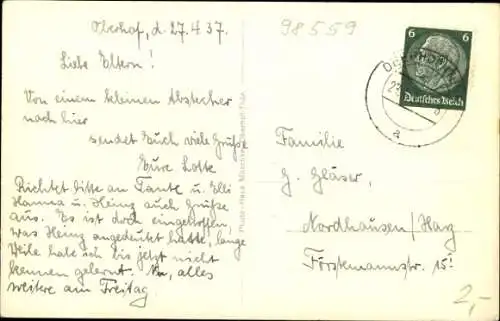 Oberhof, d. 27.4.37.
98559
Liebe Eltern!
Von einem kleinen Abstecher
nach hier
sendet Euch viele Grüße
Eure Lotte
Richtet bitte an Tante u. Elli
Hanna u. Heinz auch Grüße
aus. Es ist doch eingetroffen,
was Heinz angedeutet hatte, lange
Weile habe ich bis jetzt nicht
kennen gelernt. Nu, alles
weitere am Freitag.
6 6
Deutsches Reich
a
Familie
G. Gläser,
Nordhausen/Harz
Förstemannstr. 15!
2,-